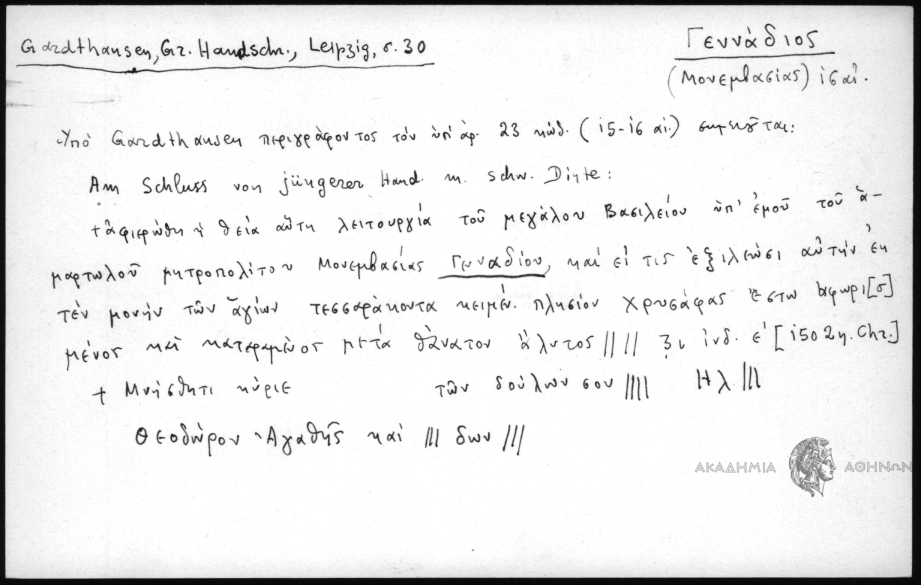 Gardthausen, Gr. Handschr., Leipzig, σ. 30
Γεννάδιος
(Μονεμβασίας) ις αἰ.
Ὑπὸ Gardthausen περιγράφοντος τὸν ὑπ' ἀρ. 23 κώδ. (ι5-ι6 αἰ.) σημειοῦται:
Am Schluss von jüngerer Hand m. schw. Dinte:
+ ἀφιερώθη ἡ θεία αὕτη λειτουργία τοῦ μεγάλου Βασιλείου ὑπ' ἐμοῦ τοῦ ἁ-
μαρτωλοῦ μητροπολίτου Μονεμβασίας Γενναδίου, καὶ εἴ τις ἐξιλεώσι αὐτὴν ἐκ
τὲν μονὴν τῶν ἁγίων τεσσαράκοντα κειμέν. πλησίον Χρυσάφας ἔστω ἀφωρι[σ]
μένος καὶ κατεραμένος μετὰ θάνατον ἄλυτος //// ζι ἰνδ. ε' [1502 n. Chr.]
+ Μνήσθητι κύριε τῶν δούλων σου //// Ηλ ///
Θεοδώρου Ἀγαθῆς καὶ /// δων ///
ΑΚΑΔΗΜΙΑ ΑΘΗΝΩΝ